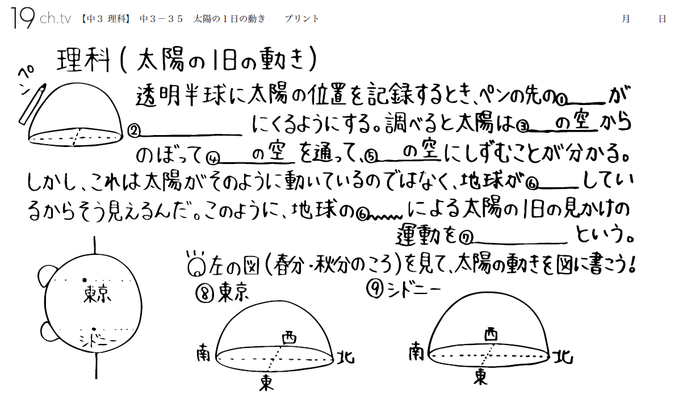 19 ch.tv 【中3 理科】 中3－35 太陽の1日の動き プリント 月 日
理科(太陽の1日の動き)
ペン
透明半球に太陽の位置を記録するとき、ペンの先の①____が
②____にくるようにする。調べると太陽は③____の空から
のぼって④____の空を通って、⑤____の空にしずむことが分かる。
しかし、これは太陽がそのように動いているのではなく、地球が⑥____してい
るからそう見えるんだ。このように、地球の⑥____による太陽の1日の見かけの
運動を⑦____という。
左の図(春分・秋分のころ)を見て、太陽の動きを図に書こう!
東京
シドニー
⑧東京
西
南
北
東
⑨シドニー
西
南
北
東